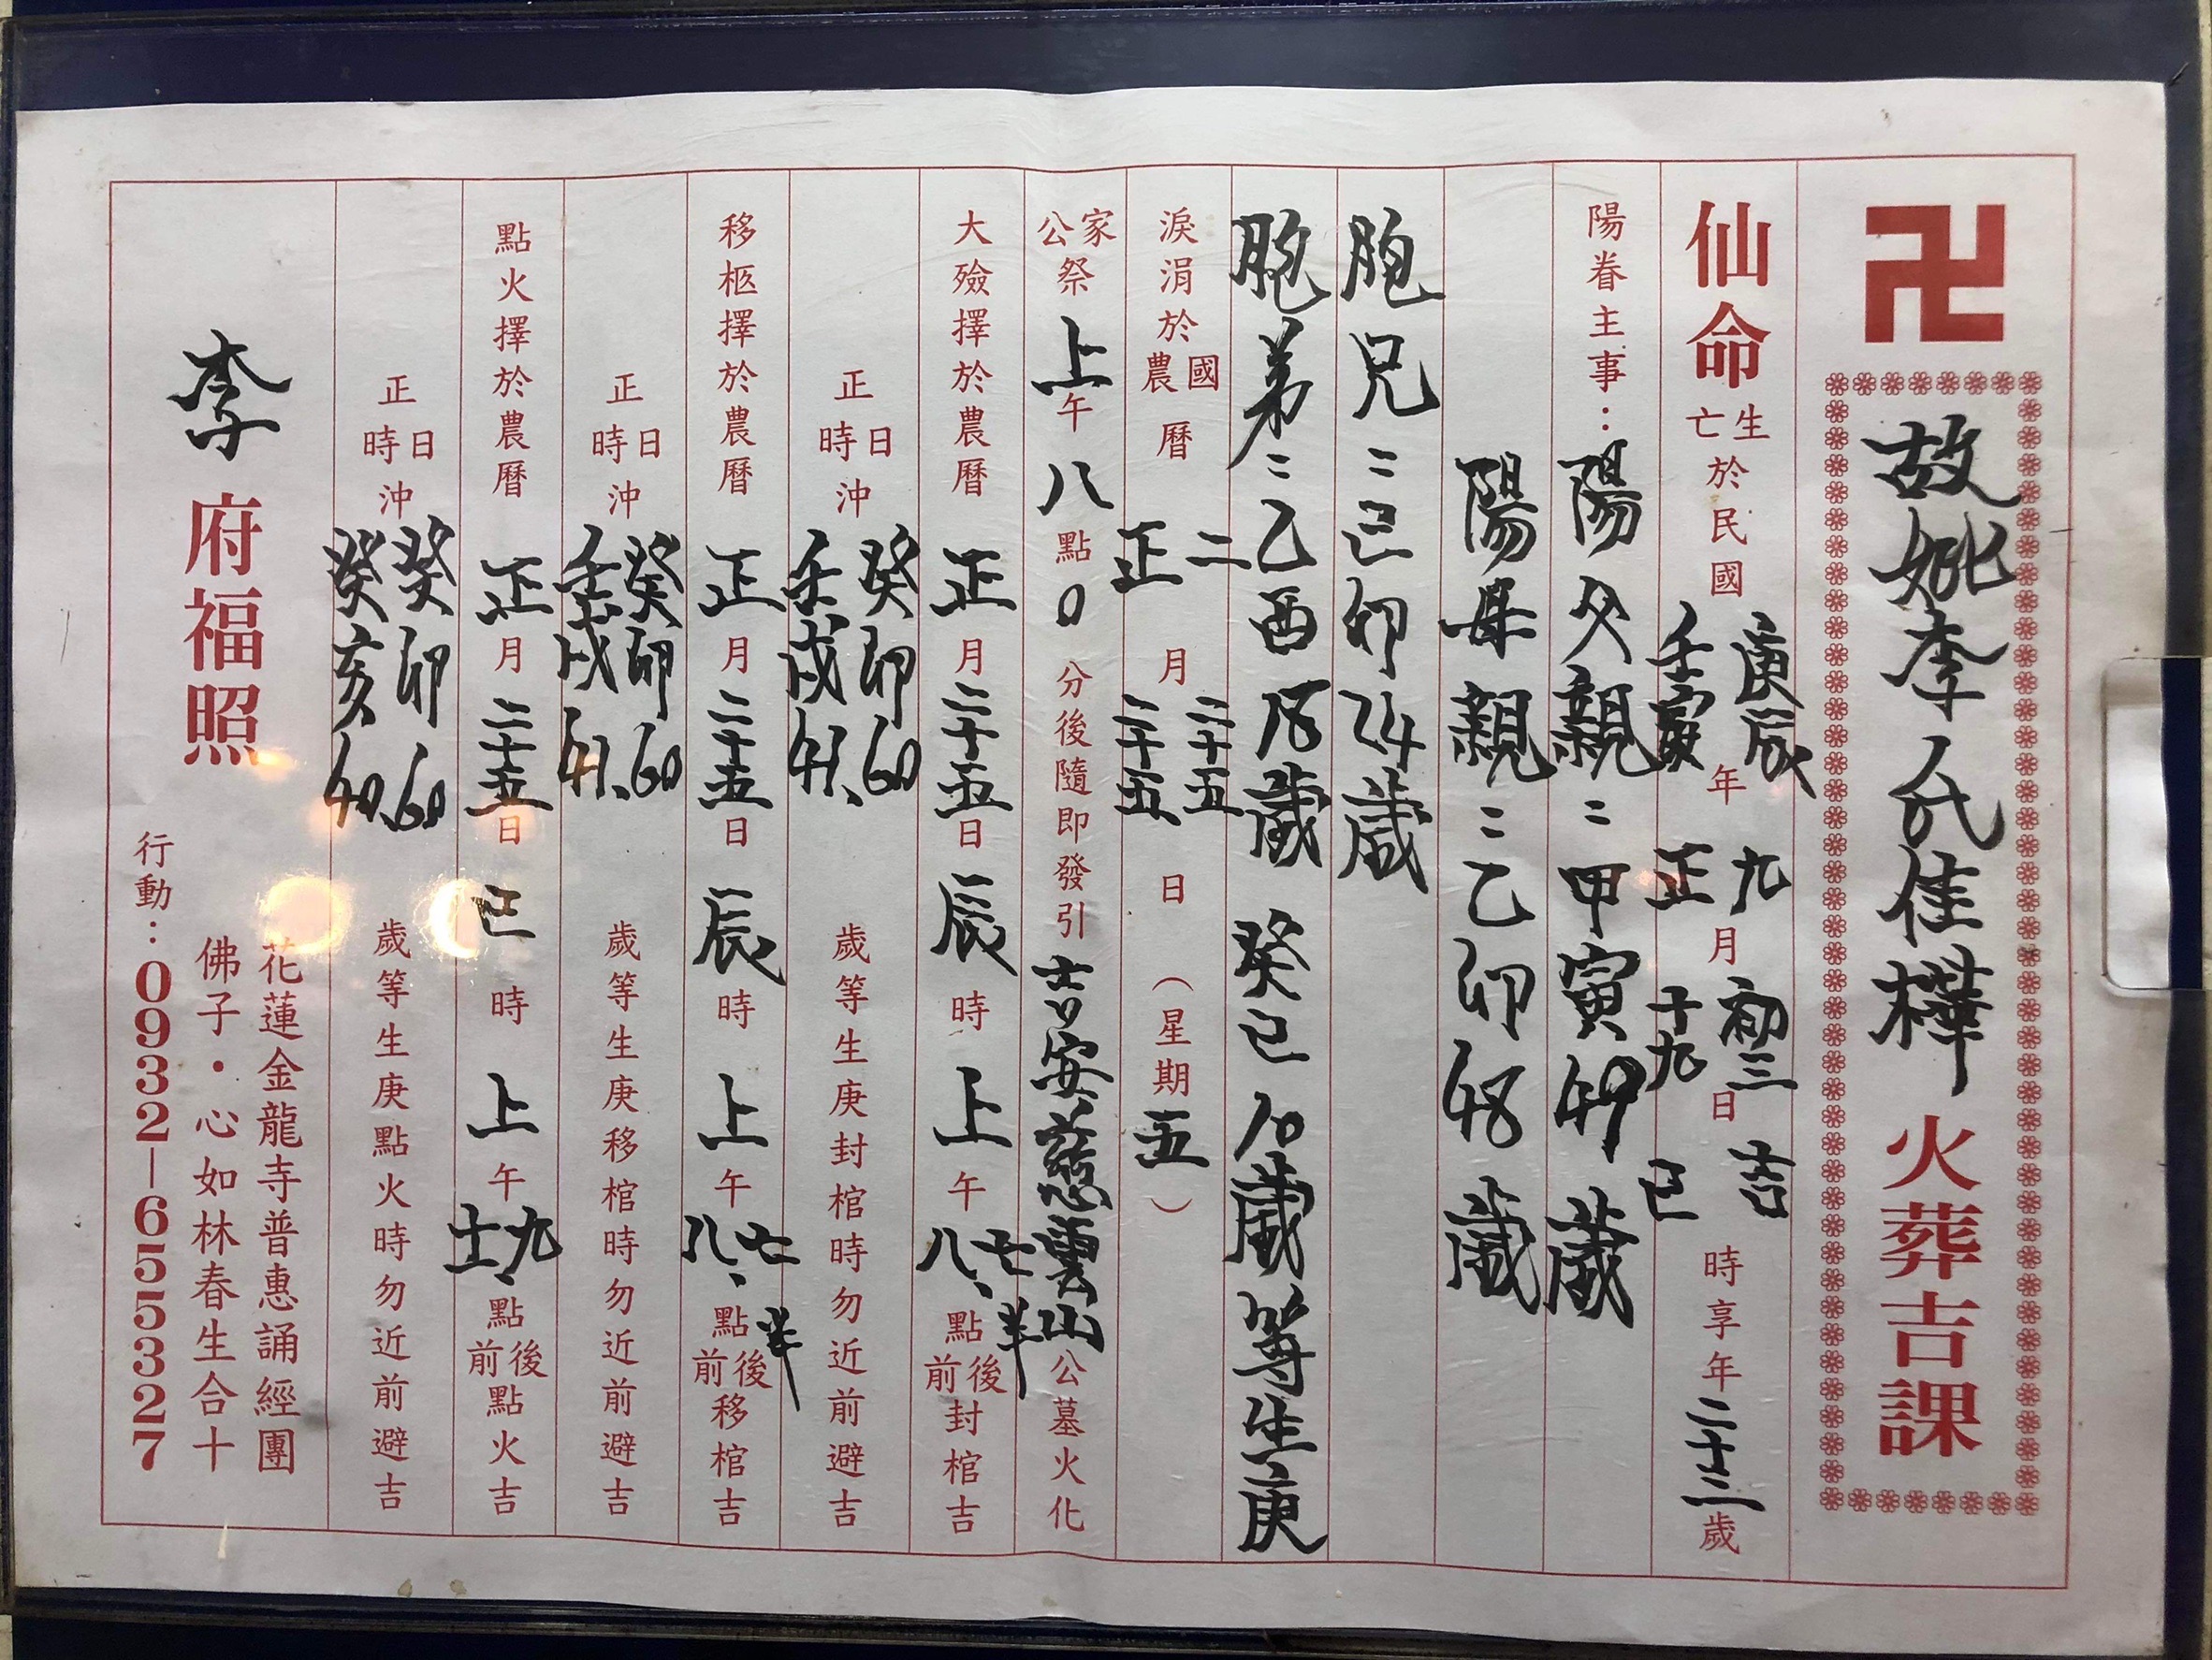 卍 故妣李氏佳樺 火葬吉課
仙命 生亡於民國 庚辰壬寅年 九正月 初三十九日 吉巳時享年二十三歲
陽眷主事：陽父親：甲寅49歲
陽母親：乙卯48歲
胞兄：己卯24歲
胞弟：乙酉18歲 癸巳10歲等生庚
淚涓於國農曆 二正月二十五二十五日（星期五）
家公祭上午八點0分後隨即發引吉安慈雲山公墓火化
大殮擇於農曆正月二十五日辰時上午七半、八點後前封棺吉
正日時沖癸卯60、壬戌41歲等生庚封棺時勿近前避吉
移柩擇於農曆正月二十五日辰時上午七半、八點後前移棺吉
正日時沖癸卯60、壬戌41歲等生庚移棺時勿近前避吉
點火擇於農曆正月二十五日巳時上午九、十一點後前點火吉
正日時沖癸卯60、癸亥40歲等生庚點火時勿近前避吉
李府福照
花蓮金龍寺普惠誦經團
佛子・心如林春生合十
行動：0932-655327